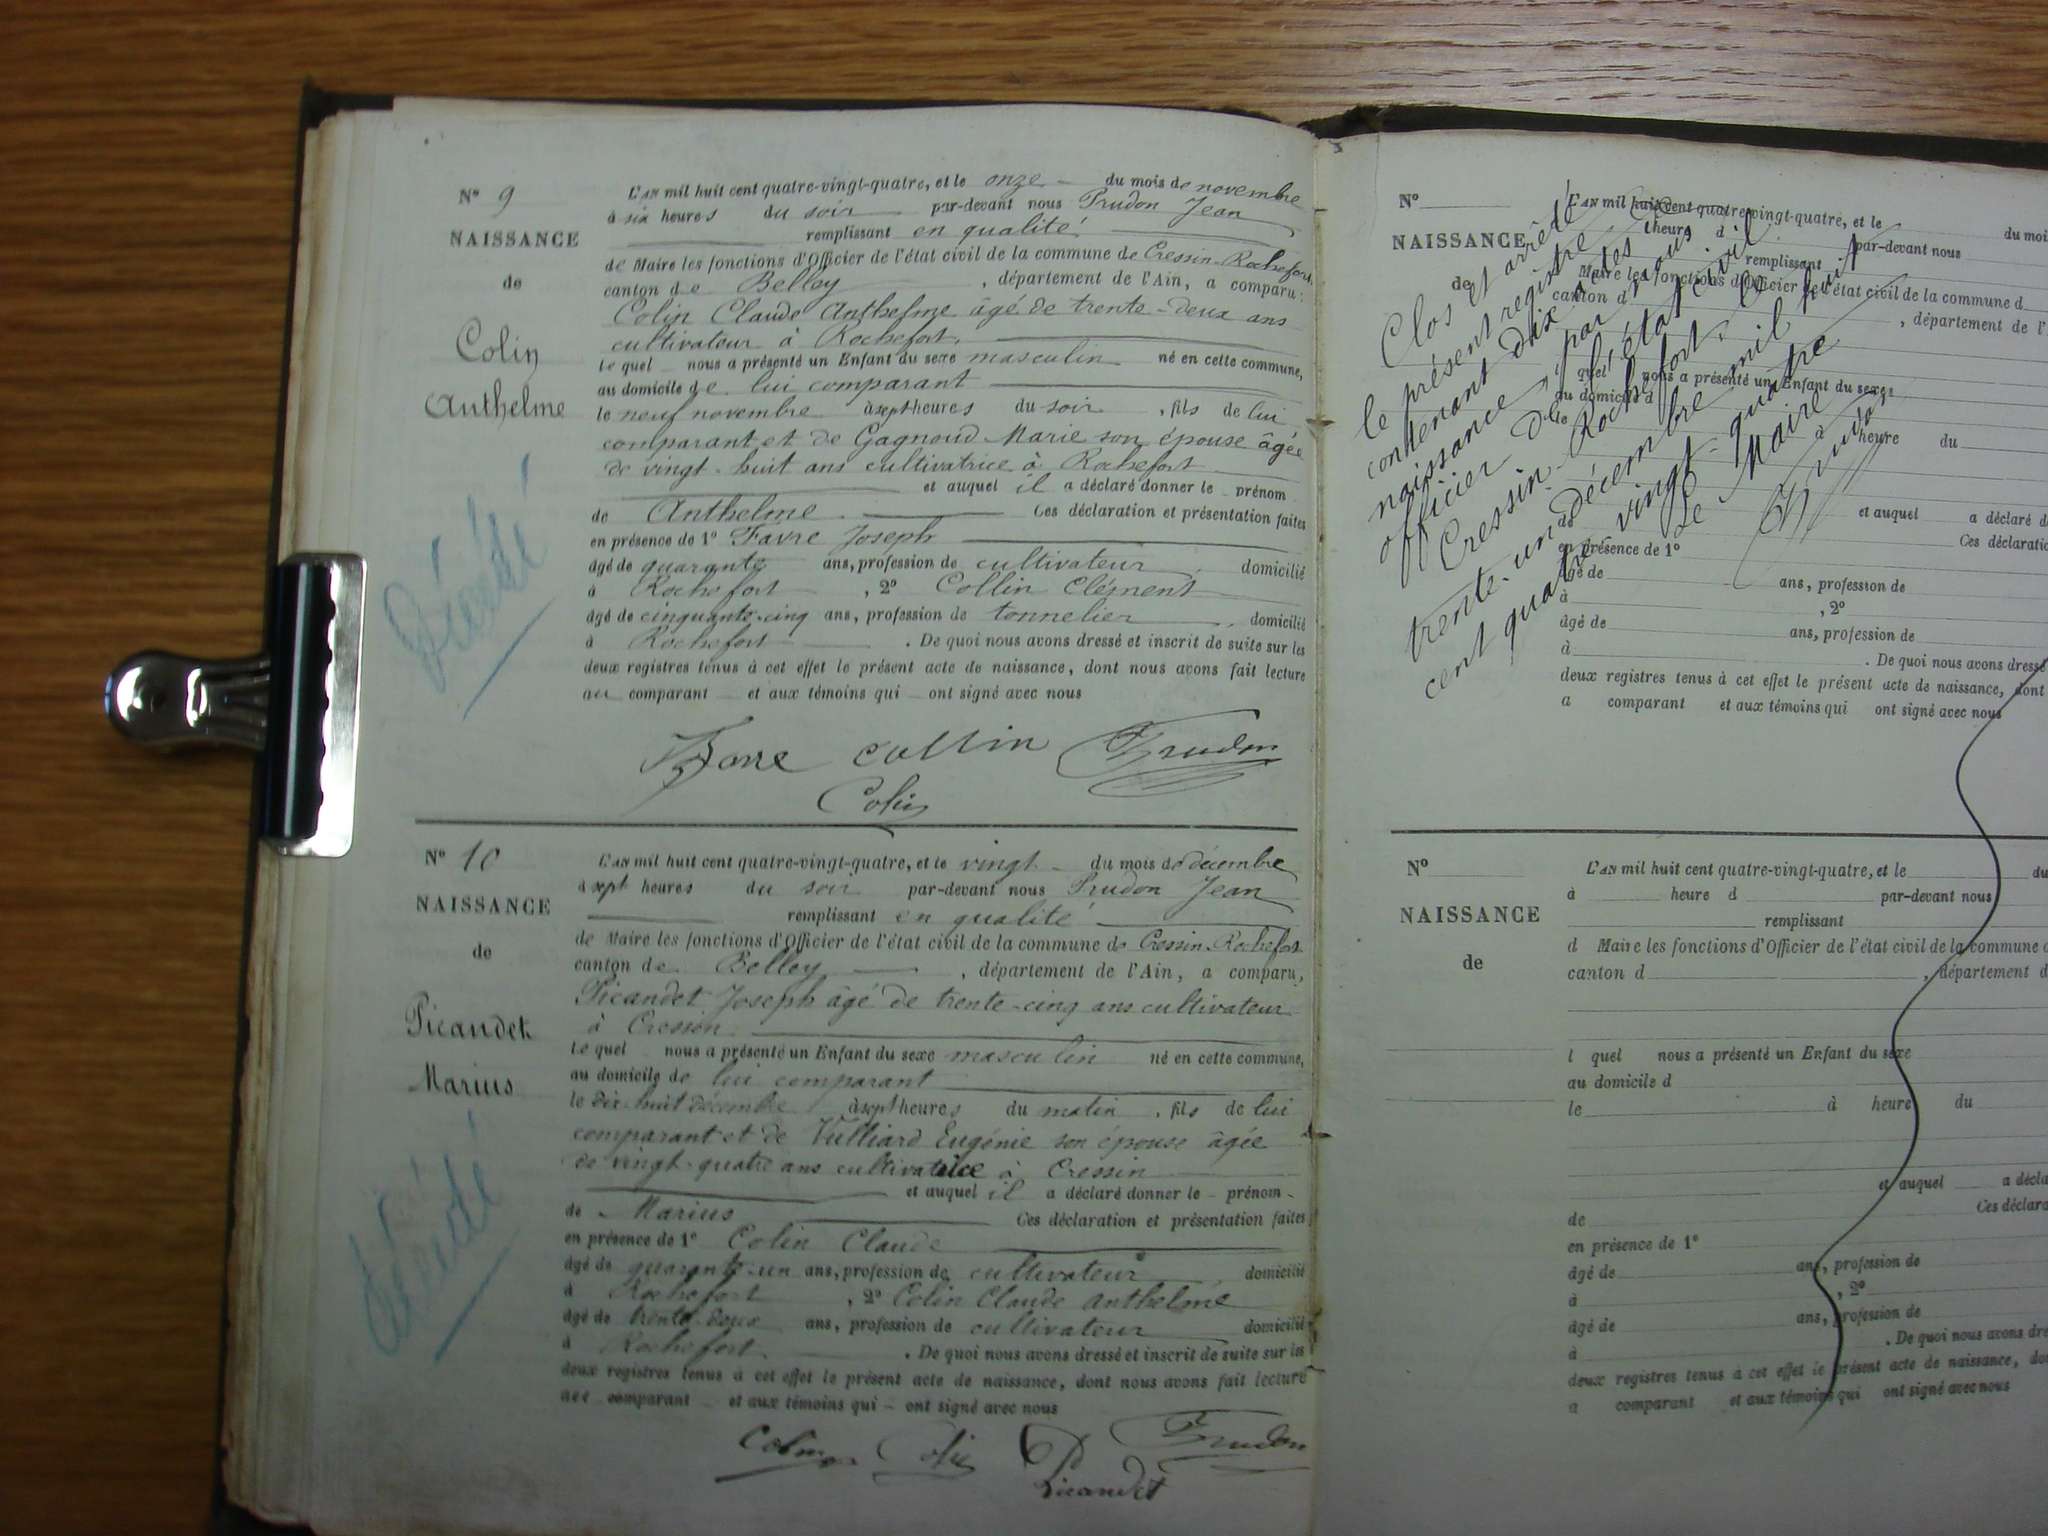 N° 9
NAISSANCE
de
Colin
Anthelme
Décédé
L'AN mil huit cent quatre-vingt-quatre, et le onze du mois de novembre
à six heures du soir par-devant nous Prudon Jean
remplissant en qualité
de Maire les fonctions d'Officier de l'état civil de la commune de Cressin-Rochefort
canton de Belley, département de l'Ain, a comparu:
Colin Claude Anthelme âgé de trente-deux ans
cultivateur à Rochefort.
lequel nous a présenté un Enfant du sexe masculin né en cette commune,
au domicile de lui comparant
le neuf novembre à sept heures du soir, fils de lui
comparant et de Gagnoud Marie son épouse âgée
de vingt-huit ans cultivatrice à Rochefort
et auquel il a déclaré donner le prénom
de Anthelme. Ces déclaration et présentation faites
en présence de 1° Favre Joseph
âgé de quarante ans, profession de cultivateur, domicilié
à Rochefort, 2° Collin Clément
âgé de cinquante-cinq ans, profession de tonnelier, domicilié
à Rochefort. De quoi nous avons dressé et inscrit de suite sur les
deux registres tenus à cet effet le présent acte de naissance, dont nous avons fait lecture
au comparant et aux témoins qui ont signé avec nous
Favre Collin Prudon
Colin
N° 10
NAISSANCE
de
Picandet
Marius
Décédé
L'AN mil huit cent quatre-vingt-quatre, et le vingt du mois de décembre
à sept heures du soir par-devant nous Prudon Jean
remplissant en qualité
de Maire les fonctions d'Officier de l'état civil de la commune de Cressin-Rochefort
canton de Belley, département de l'Ain, a comparu,
Picandet Joseph âgé de trente-cinq ans cultivateur
à Cressin
lequel nous a présenté un Enfant du sexe masculin né en cette commune,
au domicile de lui comparant
le dix-huit décembre à sept heures du matin, fils de lui
comparant et de Vulliard Eugénie son épouse âgée
de vingt-quatre ans cultivatrice à Cressin
et auquel il a déclaré donner le prénom
de Marius Ces déclaration et présentation faites
en présence de 1° Colin Claude
âgé de quarante-un ans, profession de cultivateur, domicilié
à Rochefort, 2° Colin Claude Anthelme
âgé de trente-deux ans, profession de cultivateur domicilié
à Rochefort. De quoi nous avons dressé et inscrit de suite sur les
deux registres tenus à cet effet le présent acte de naissance, dont nous avons fait lecture
au comparant et aux témoins qui ont signé avec nous
Colin Colin Prudon
Picandet
Clos et arrêté
le présent registre
contenant dix actes
naissance, par nous
officier de l'état civil
Cressin-Rochefort, le
trente-un décembre mil huit
cent quatre-vingt-quatre
Le Maire
Prudon
N°
NAISSANCE
de
L'AN mil huit cent quatre-vingt-quatre, et le du moi
heure d par-devant nous
remplissant
Maire les fonctions d'Officier de l'état civil de la commune d
canton d, département de l'
quel nous a présenté un Enfant du sexe
au domicile d
le à heure du
et auquel a déclaré d
de Ces déclaratio
en présence de 1°
âgé de ans, profession de
à, 2°
âgé de ans, profession de
à. De quoi nous avons dressé
deux registres tenus à cet effet le présent acte de naissance, dont
a comparant et aux témoins qui ont signé avec nous
N°
NAISSANCE
de
L'AN mil huit cent quatre-vingt-quatre, et le du
à heure d par-devant nous
remplissant
d Maire les fonctions d'Officier de l'état civil de la commune
canton d, département d
l quel nous a présenté un Enfant du sexe
au domicile d
le à heure du
et auquel a décla
de Ces déclara
en présence de 1°
âgé de ans, profession de
à, 2°
âgé de ans, profession de
à. De quoi nous avons dre
deux registres tenus à cet effet le présent acte de naissance, do
a comparant et aux témoins qui ont signé avec nous